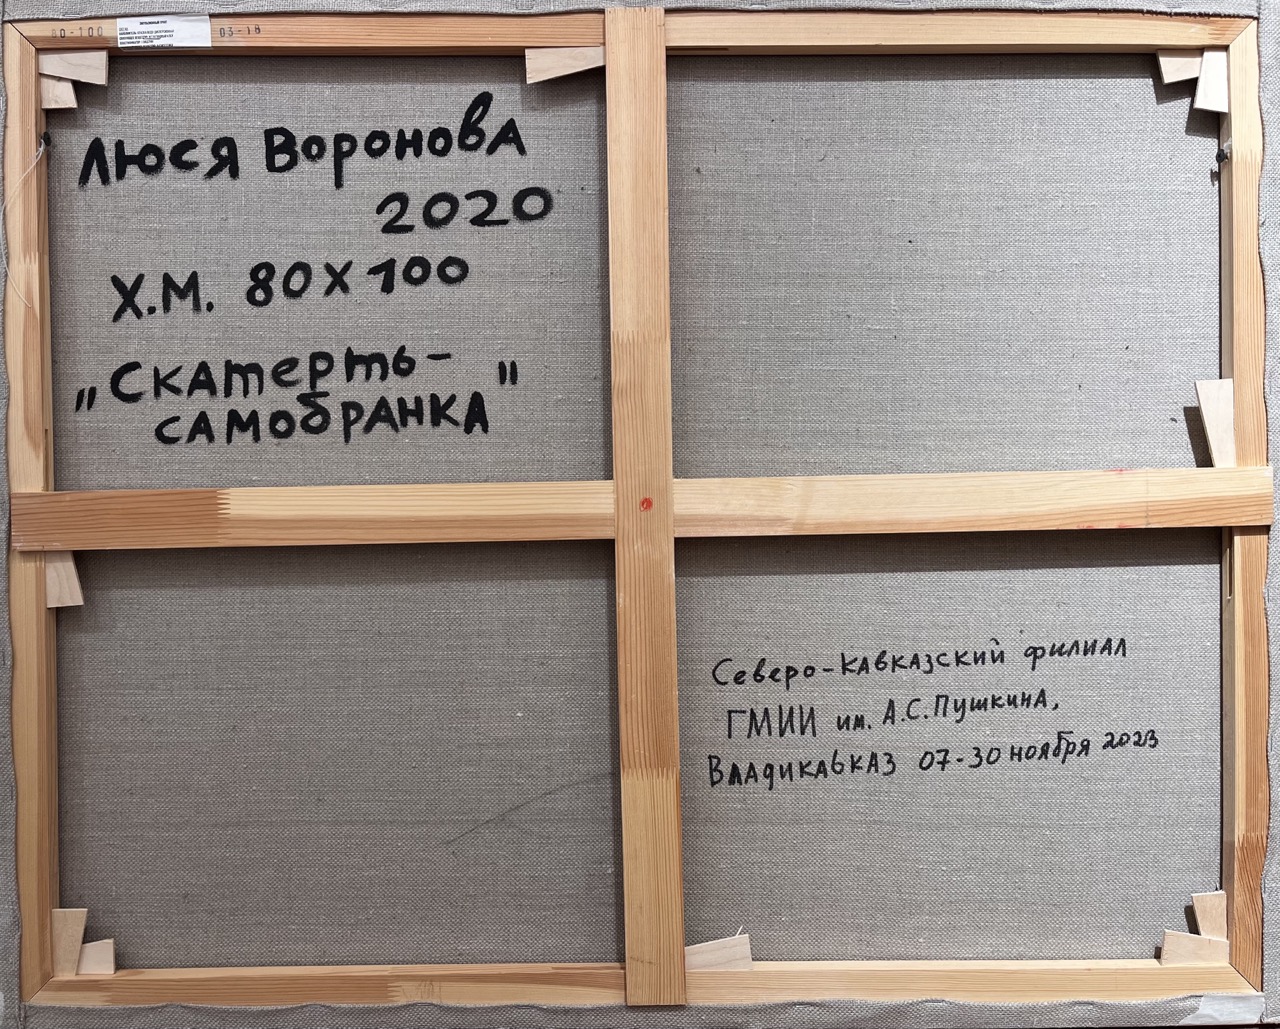 80-100
03-18
Люся Воронова
2020
Х.М. 80х100
„Скатерть-
самобранка"
Северо-Кавказский филиал
ГМИИ им. А.С. Пушкина,
Владикавказ 07-30 ноября 2023